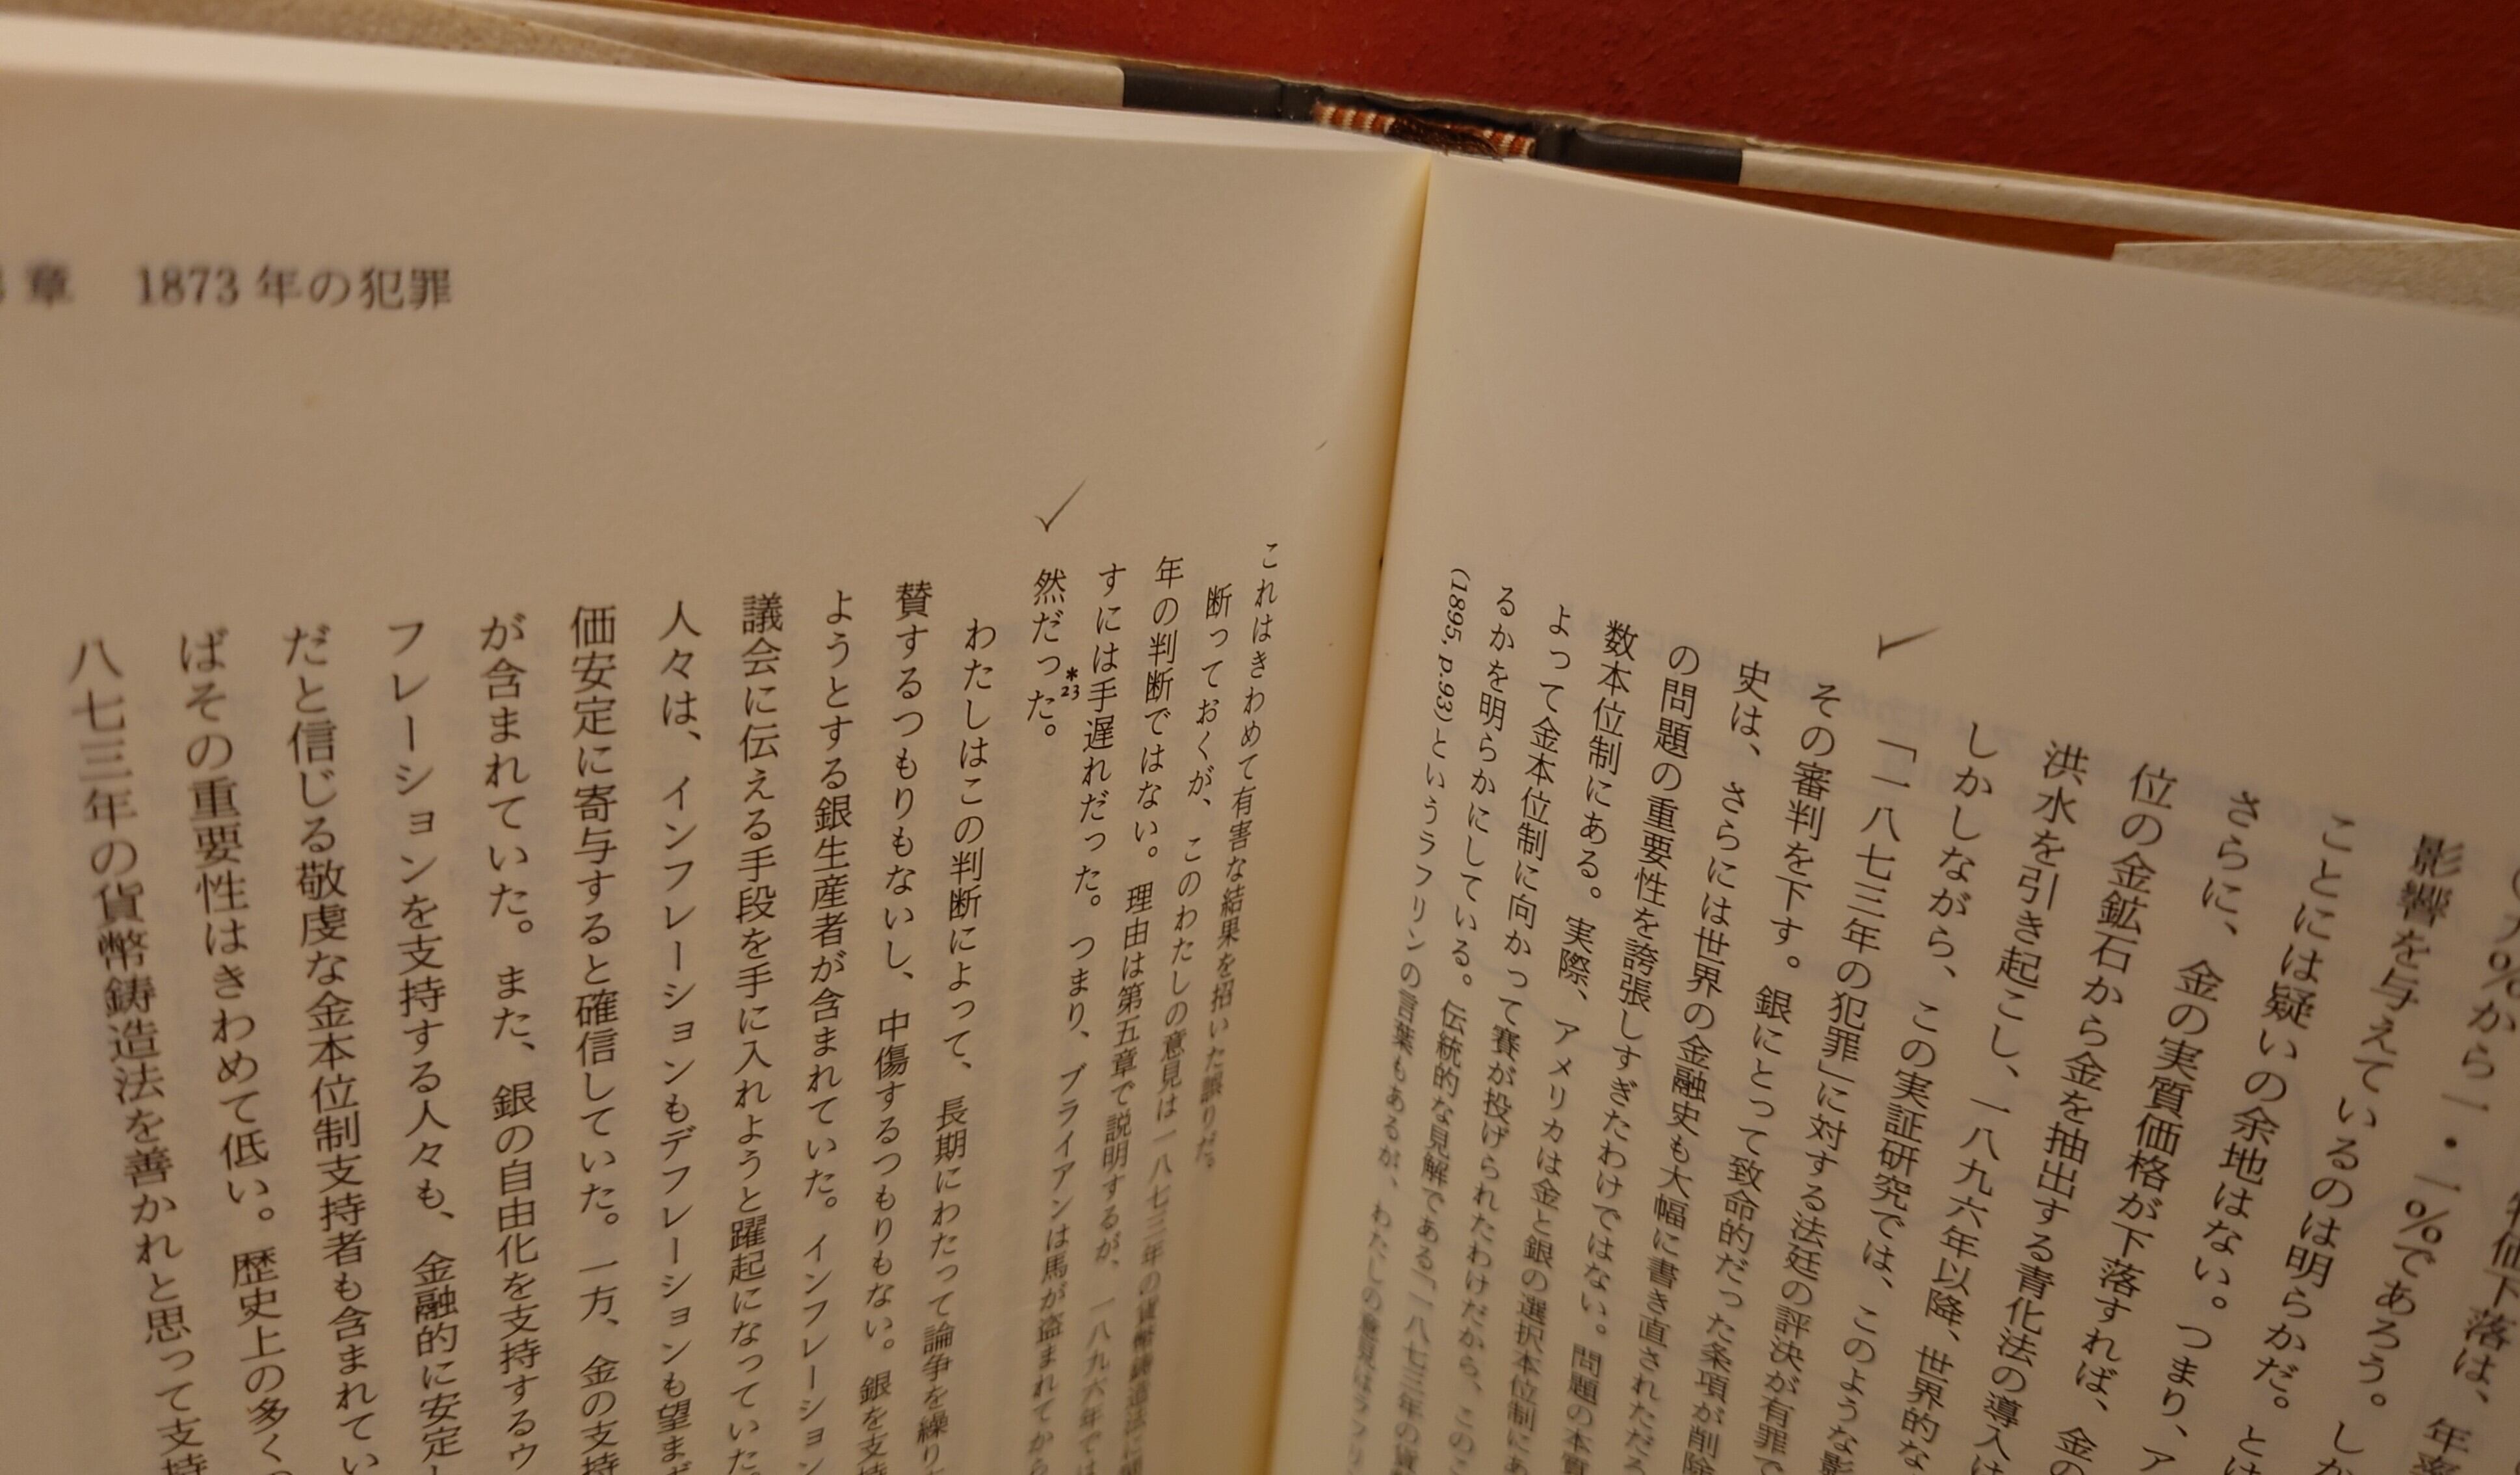 価下落は、年
から一・一%であろう。し
影響を与えているのは明らかだ。とは
ことには疑いの余地はない。つまり、ア
さらに、金の実質価格が下落すれば、金の
位の金鉱石から金を抽出する青化法の導入は
洪水を引き起こし、一八九六年以降、世界的な
しかしながら、この実証研究では、このような影
「一八七三年の犯罪」に対する法廷の評決が有罪で
その審判を下す。銀にとって致命的だった条項が削除
史は、さらには世界の金融史も大幅に書き直されただろ
の問題の重要性を誇張しすぎたわけではない。問題の本質
数本位制にある。実際、アメリカは金と銀の選択本位制にあ
よって金本位制に向かって賽が投げられたわけだから、このこ
るかを明らかにしている。伝統的な見解である「一八七三年の貨
(1895, p.93)というラフリンの言葉もあるが、わたしの意見はラフリ
章 1873年の犯罪
これはきわめて有害な結果を招いた誤りだ。
断っておくが、このわたしの意見は一八七三年の貨幣鋳造法に
年の判断ではない。理由は第五章で説明するが、一八九六年では
すには手遅れだった。つまり、ブライアンは馬が盗まれてから
然だった。*23
わたしはこの判断によって、長期にわたって論争を繰り
賛するつもりもないし、中傷するつもりもない。銀を支持
ようとする銀生産者が含まれていた。インフレーション
議会に伝える手段を手に入れようと躍起になっていた
人々は、インフレーションもデフレーションも望まず
価安定に寄与すると確信していた。一方、金の支持
が含まれていた。また、銀の自由化を支持するウ
フレーションを支持する人々も、金融的に安定し
だと信じる敬虔な金本位制支持者も含まれてい
ばその重要性はきわめて低い。歴史上の多く
八七三年の貨幣鋳造法を善かれと思って支持